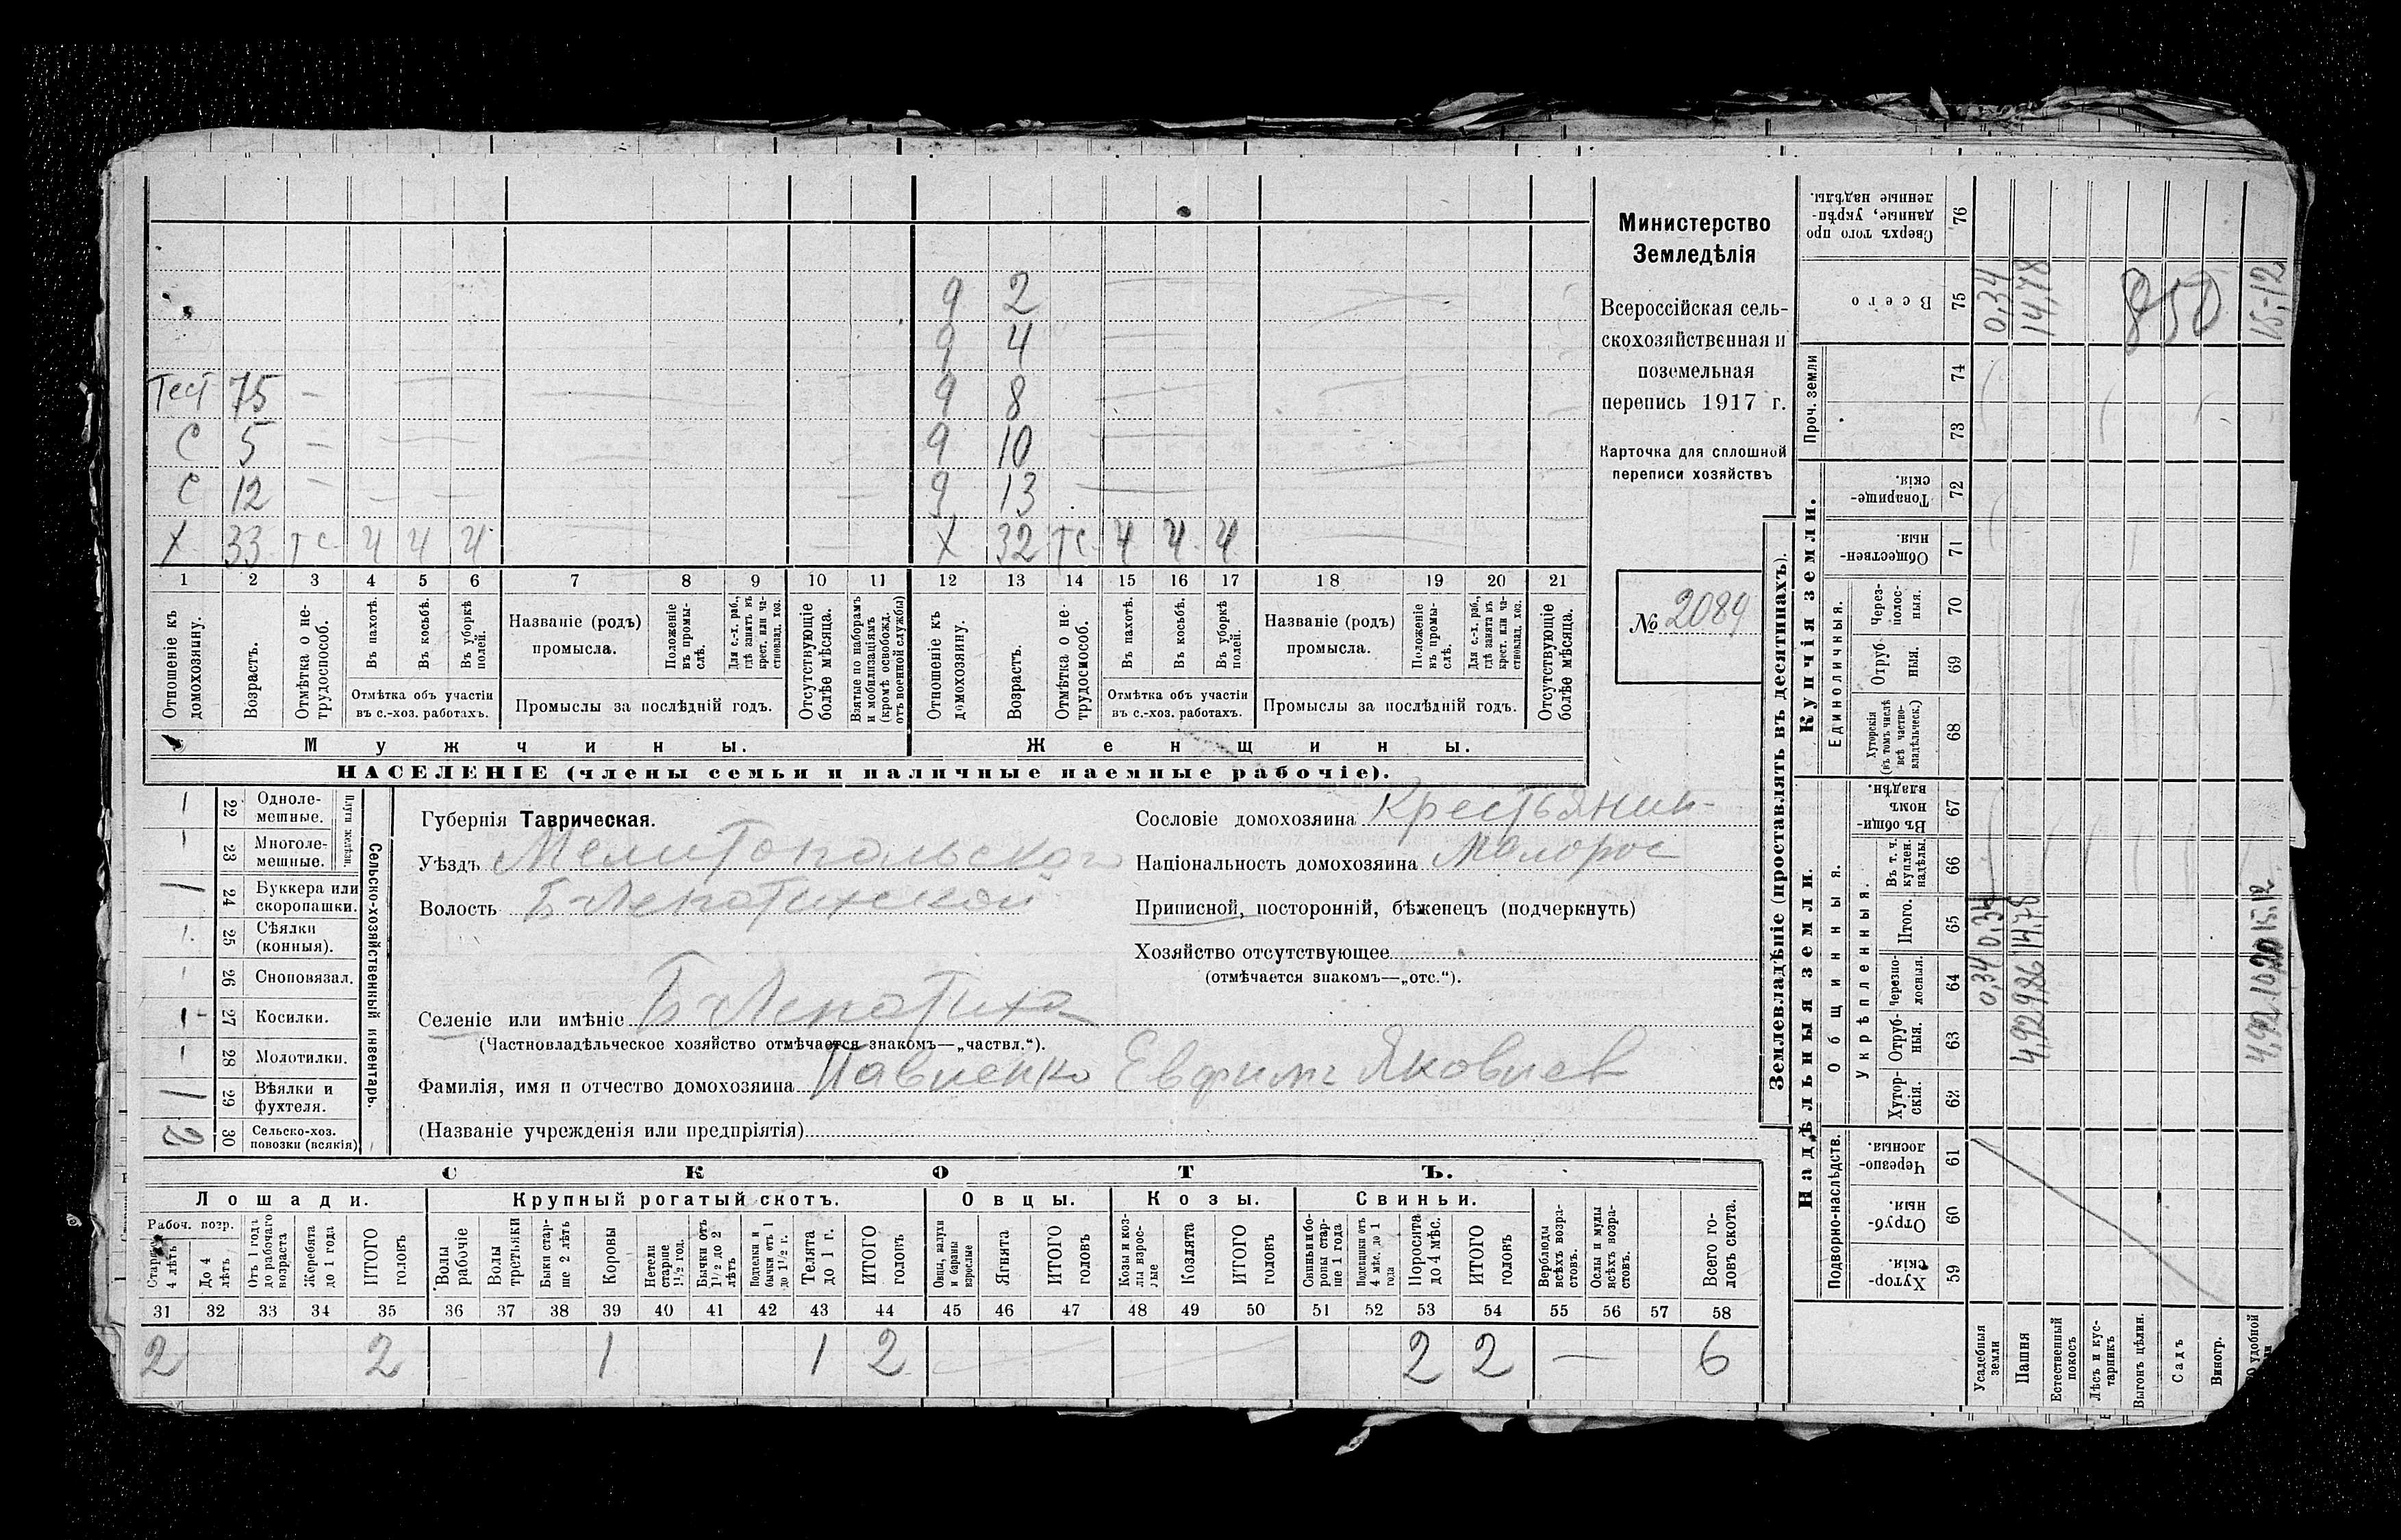 Министерство
Земледѣлія
Всероссійская сель-
скохозяйственная и
поземельная
перепись 1917 г.
Карточка для сплошной
переписи хозяйствъ
№ 2089
9 2
9 4
Тест 75 — 9 8
С 5 — 9 10
С 12 — 9 13
Х 33 тс. Ч Ч Ч Х 32 тс. Ч Ч Ч
1 2 3 4 5 6 7 8 9 10 11 12 13 14 15 16 17 18 19 20 21
Отношеніе къ домохозяину.
Возрастъ.
Отмѣтка о не-трудоспособ.
Въ пахотѣ.
Въ косьбѣ.
Въ уборкѣ полей.
Отмѣтка объ участіи
въ с.-хоз. работахъ.
Названіе (родъ)
промысла.
Положеніе въ промы-слѣ.
Для с.-х. раб., гдѣ занятъ въ крест. или ча-стновлад. хоз.
Промыслы за послѣдній годъ.
Отсутствующіе болѣе мѣсяца.
Взятые по наборамъ и мобилизаціямъ (кромѣ освобожд. отъ военной службы)
Отношеніе къ домохозяину.
Возрастъ.
Отмѣтка о не-трудоспособ.
Въ пахотѣ.
Въ косьбѣ.
Въ уборкѣ полей.
Отмѣтка объ участіи
въ с.-хоз. работахъ.
Названіе (родъ)
промысла.
Положеніе въ промы-слѣ.
Для с.-х. раб., гдѣ занята въ крест. или ча-стновлад. хоз.
Промыслы за послѣдній годъ.
Отсутствующіе болѣе мѣсяца.
Мужчины. Женщины.
НАСЕЛЕНІЕ (члены семьи и наличные наемные рабочіе).
Сельско-хозяйственный инвентарь.
Плуги желѣзн.
22 Одноле-
мешные.
23 Многоле-
мешные.
1 24 Буккера или
скоропашки.
25 Сѣялки
(конныя).
26 Сноповязал.
27 Косилки.
28 Молотилки.
1 29 Вѣялки и
фухтеля.
2 30 Сельско-хоз.
повозки (всякія)
Губернія Таврическая.
Уѣздъ Мелитопольскаго
Волость Б-Лепатихской
Селеніе или имѣніе Б-Лепатиха
(Частновладѣльческое хозяйство отмѣчается знакомъ—„частвл.“).
Фамилія, имя и отчество домохозяина Павленко Евфимъ Яковлев
(Названіе учрежденія или предпріятія)
Сословіе домохозяина Крестьянин
Національность домохозяина Малорос
Приписной, посторонній, бѣженецъ (подчеркнуть)
Хозяйство отсутствующее
(отмѣчается знакомъ—„отс.“).
СКОТЪ.
Лошади. Крупный рогатый скотъ. Овцы. Козы. Свиньи.
Рабоч. возр.
Старше 4 лѣтъ
До 4 лѣтъ
Отъ 1 года до рабочаго возраста
Жеребята до 1 года
ИТОГО головъ
Волы рабочіе
Волы третьяки
Быки стар-ше 2 лѣтъ
Коровы
Нетели старше 1½ год.
Бычки отъ 1½ до 2 лѣтъ
Подтелки и бычки отъ 1 до 1½ г.
Телята до 1 г.
ИТОГО головъ
Овцы, валухи и бараны взрослые
Ягнята
ИТОГО головъ
Козы и коз-лы взрос-лые
Козлята
ИТОГО головъ
Свиньи и бо-ровы стар-ше 1 года
Подсвинки отъ 4 мѣс. до 1 года
Поросята до 4 мѣс.
ИТОГО головъ
Верблюды всѣхъ возра-стовъ.
Ослы и мулы всѣхъ возра-стовъ.
Всего го-ловъ скота.
31 32 33 34 35 36 37 38 39 40 41 42 43 44 45 46 47 48 49 50 51 52 53 54 55 56 57 58
2 2 1 1 2 2 2 — 6
Землевладѣніе (проставлять въ десятинахъ).
Надѣльныя земли. Купчія земли. Проч. земли
Подворно-наслѣдств.
Общинныя.
Укрѣпленныя.
Единоличныя.
Хутор-скія. 59
Отруб-ныя. 60
Черезпо-лосныя. 61
Хутор-скія. 62
Отруб-ныя. 63
Черезпо-лосныя. 64
Итого. 65
Въ т. ч. куплен. надѣлы. 66
Въ общи-номъ владѣн. 67
Хуторскія (въ томъ числѣ всѣ частно-владѣльческ.) 68
Отруб-ныя. 69
Через-полос-ныя. 70
Обществен-ныя. 71
Товарище-скія. 72
73
74
Всего 75
Сверхъ того про данные, укрѣп-ленные надѣлы. 76
Усадебныя земли 0,34 0,34 0,34
Пашня 4,92 9,86 14,78 14,78
Естественный покосъ
Лѣсъ и кус-тарникъ
Выгонъ цѣлин.
Садъ
Виногр.
удобной 4,92 15,12 15,12
850